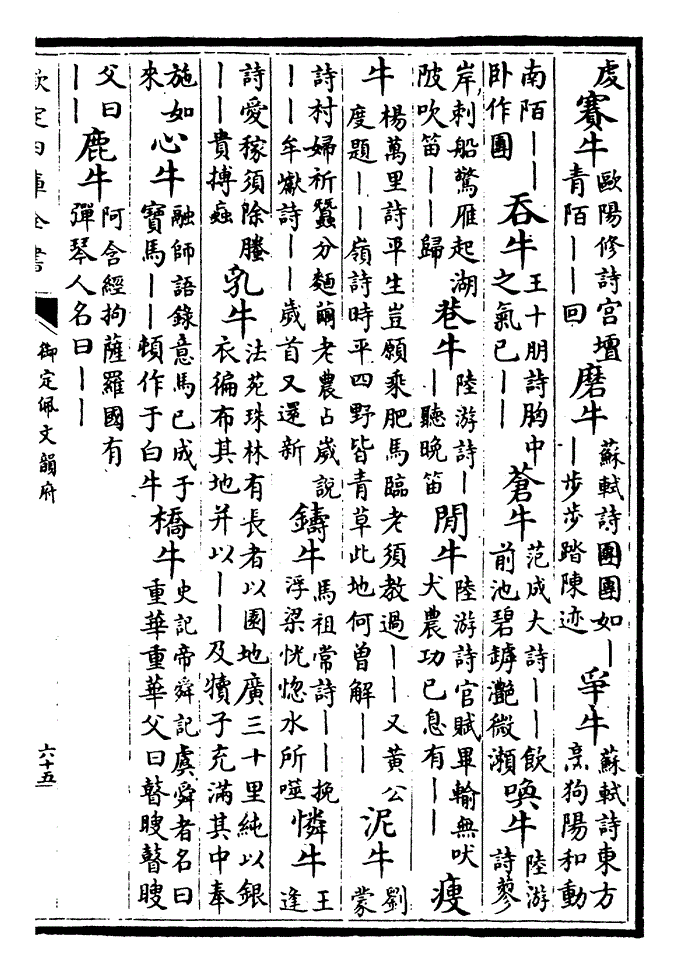 處賽牛歐陽修詩宮壇青陌——回磨牛蘇軾詩團團如——步步踏陳迹爭牛蘇軾詩東方烹狗陽和動
南陌——臥作團吞牛王十朋詩胸中之氣已——蒼牛范成大詩——飲前池碧罅灩微瀬喚牛陸游詩蓼
岸刺船驚雁起湖陂吹笛——歸巷牛陸游詩——聽晚笛閒牛陸游詩官賦畢輸無吠犬農功已息有——瘦
牛楊萬里詩平生豈願乘肥馬臨老須教過——又黃公度題——嶺詩時平四野皆青草此地何曾解——泥牛劉蒙
詩村婦祈蠶分麵繭老農占歲說——牟巘詩——歲首又還新鑄牛馬祖常詩——挽浮梁恍惚水所噬憐牛王逢
詩愛稼須除螣——貴搏蝱乳牛法苑珠林有長者以園地廣三十里純以銀衣徧布其地并以——及犢子充滿其中奉
施如來心牛融師語錄意馬已成于寶馬——頓作于白牛橋牛史記帝舜記虞舜者名曰重華重華父曰瞽瞍瞽瞍
父曰——鹿牛阿含經拘薩羅國有彈琴人名曰——
欽定四庫全書
御定佩文韻府
六十五